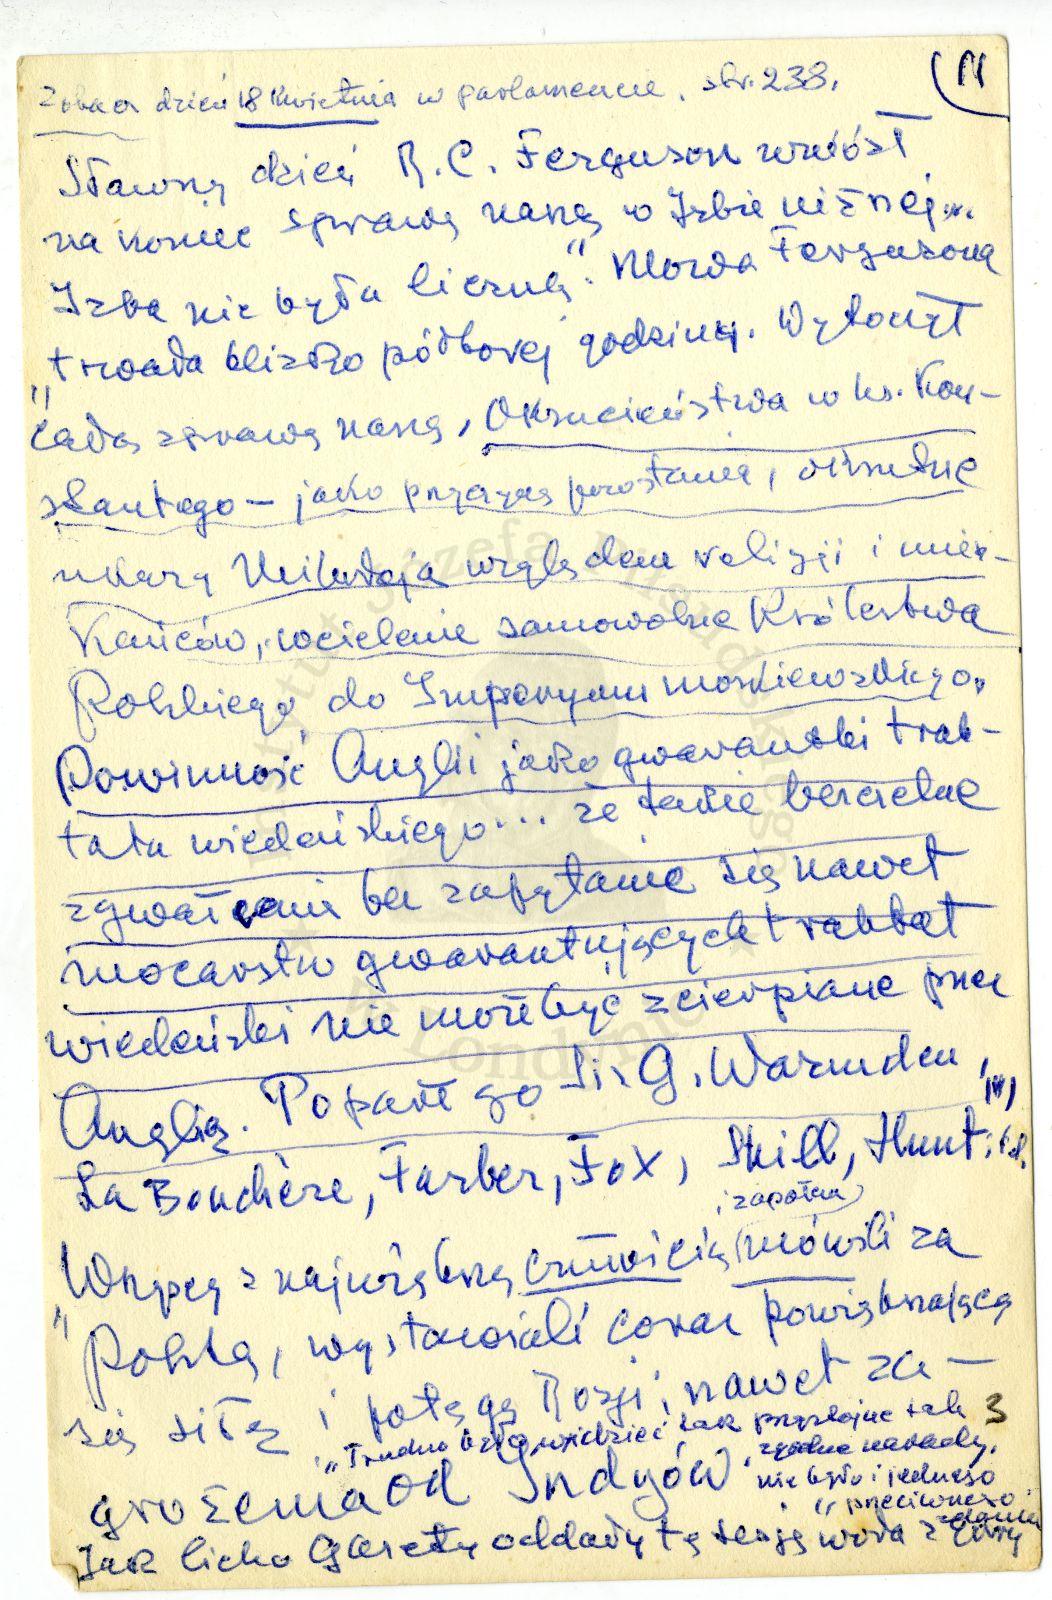 Zobacz dzień 18 Kwietnia w parlamencie. str. 238.
Sławny dzień R. C. Ferguson wniósł
na koniec sprawę naszą w Izbie niższej...
Izba nie była liczną". Mowa Fergusona
trwała blizko półtorej godziny. Wyłożył
"całą sprawę naszą, Okrucieństwa w. ks. Kon-
stantego – jako przyczynę powstania, okrutne
ukazy Mikołaja względem religji i miesz-
kańców, wcielenie samowolne Królestwa
Polskiego do Imperyum moskiewskiego.
Powinność Anglii jako gwarantki trak-
tatu wiedeńskiego... że takie bezczelne
zgwałcenie bez zapytania się nawet
mocarstw gwarantujących traktat
wiedeński nie może być ścierpiane przez
Anglię. Poparł go Sir G. Warenden,
La Bouchère, Farber, Fox, Shill, Hunt, i t.d.
i zapałem
Wszyscy z największą czułością mówili za
"Polską, wystawiali coraz powiększającą
się siłę i potęgę Rosji, nawet za-
"Trudno było widzieć tak przystojne tak
grożenia od Indyów. zgodne narady,
nie było i jednego
przeciwnego
zdania
Jak licho Gazety oddały tę sesję woła z
3